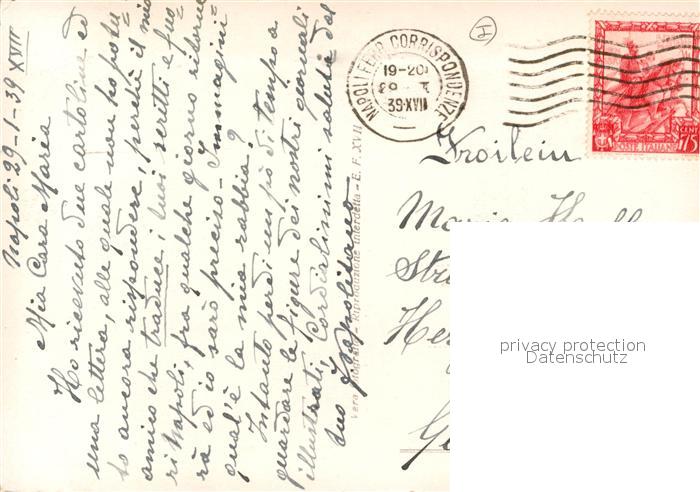 Napoli 29-1-39 XVII
Mia Cara Maria
Ho ricevuto due cartoline ed
una lettera, alle quale non ho potu-
to ancora rispondere, perchè il mio
amico che traduce i tuoi scritti e fuo-
ri Napoli, fra qualche giorno ritorne-
rà ed io sarò preciso - Immagini
qual'è la mia rabbia?
Intanto perdi un pò di tempo a
guardare le figure dei nostri giornali
illustrati. Cordialissimi saluti dal
tuo Napolitano
Vera Fotografia - Riproduzione interdetta - E. F. XVII
NAPOLI FERR. CORRISPONDENZE
19-20
39·XVII
I
POSTE ITALIANE
CENT 75
Froilein
Maria
Str
He
Ge
privacy protection
Datenschutz